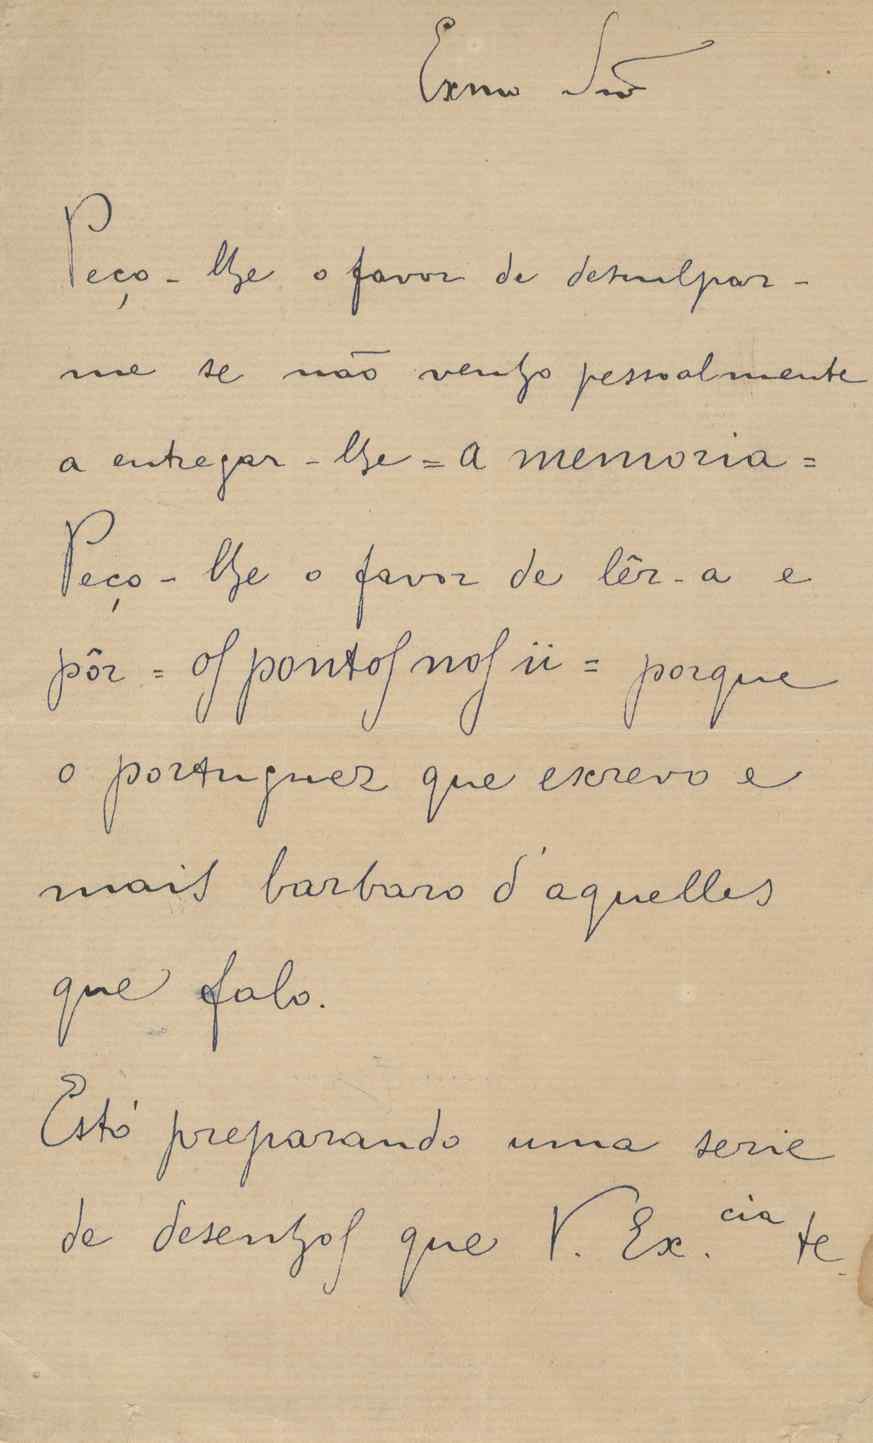 Exmo Snr
Peço-lhe o favor de desculpar-
me se não venho pessoalmente
a entregar-lhe = a memoria =
Peço-lhe o favor de lêr-a e
pôr = os pontos nos ii = porque
o portuguez que escrevo e
mais barbaro d'aquelles
que falo.
Estó preparando uma serie
de desenhos que V. Ex.cia te-